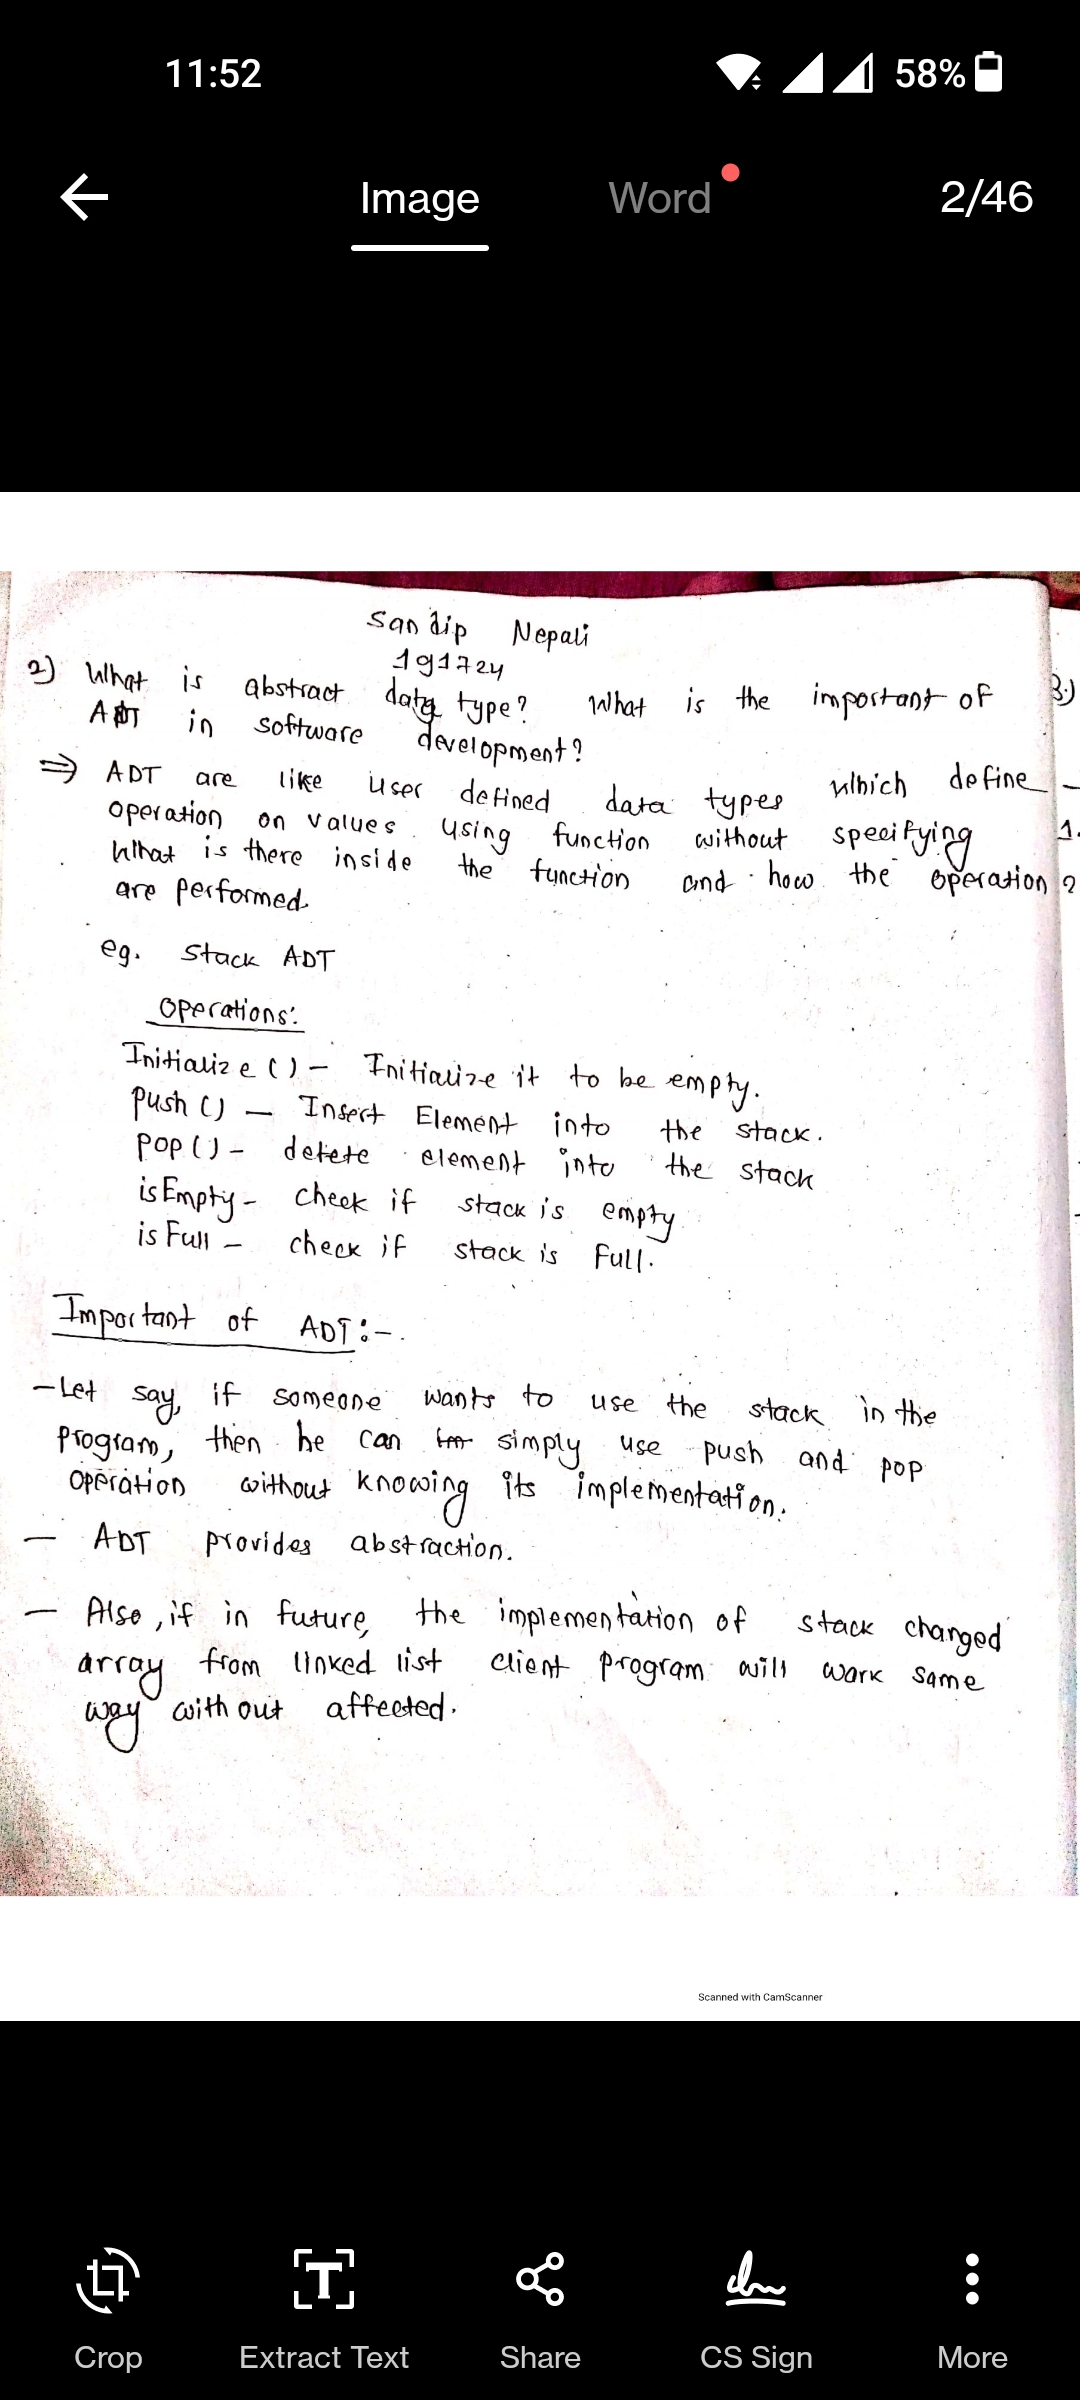 11:52
58%
Image
Word
2/46
Sandip Nepali
191724
2) What is abstract data type? What is the important of
ADT in software development?
⇒ ADT are like user defined data types which define
operation on values using function without specifying
what is there inside the function and how the operation
are performed.
eg. Stack ADT
Operations:
Initialize () – Initialize it to be empty.
Push () – Insert Element into the stack.
pop () – delete element into the stack
isEmpty – check if stack is empty
isFull – check if stack is Full.
Important of ADT :-
– Let say, if someone wants to use the stack in the
program, then he can simply use push and pop
operation without knowing its implementation.
– ADT provides abstraction.
– Also, if in future, the implementation of stack changed
array from linked list client program will work same
way without affected.
3.)
1.
2
Scanned with CamScanner
Crop
Extract Text
Share
CS Sign
More